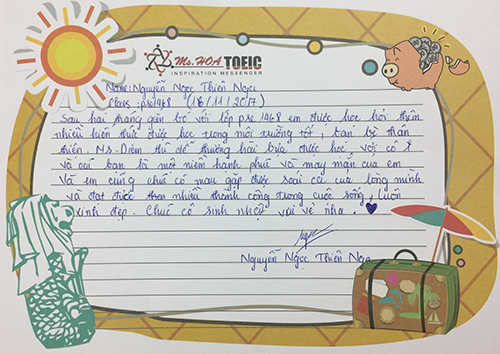 Ms.HOA TOEIC
INSPIRATION MESSENGER
Name: Nguyễn Ngọc Thiên Nga
Class: pre1948 (18/11/2017)
Sau hai tháng gắn bó với lớp pre 1948 em được học hỏi thêm
nhiều kiến thức được học trong môi trường tốt, bạn bè thân
thiện. Ms. Diễm thì dễ thương hài hước được học với cô
và các bạn là một niềm hạnh phúc và may mắn của em
Và em cũng chúc cô mau gặp được soái ca của lòng mình
và đạt được thêm nhiều thành công trong cuộc sống, luôn
xinh đẹp. Chúc cô sinh nhật vui vẻ nha.
Nguyễn Ngọc Thiên Nga